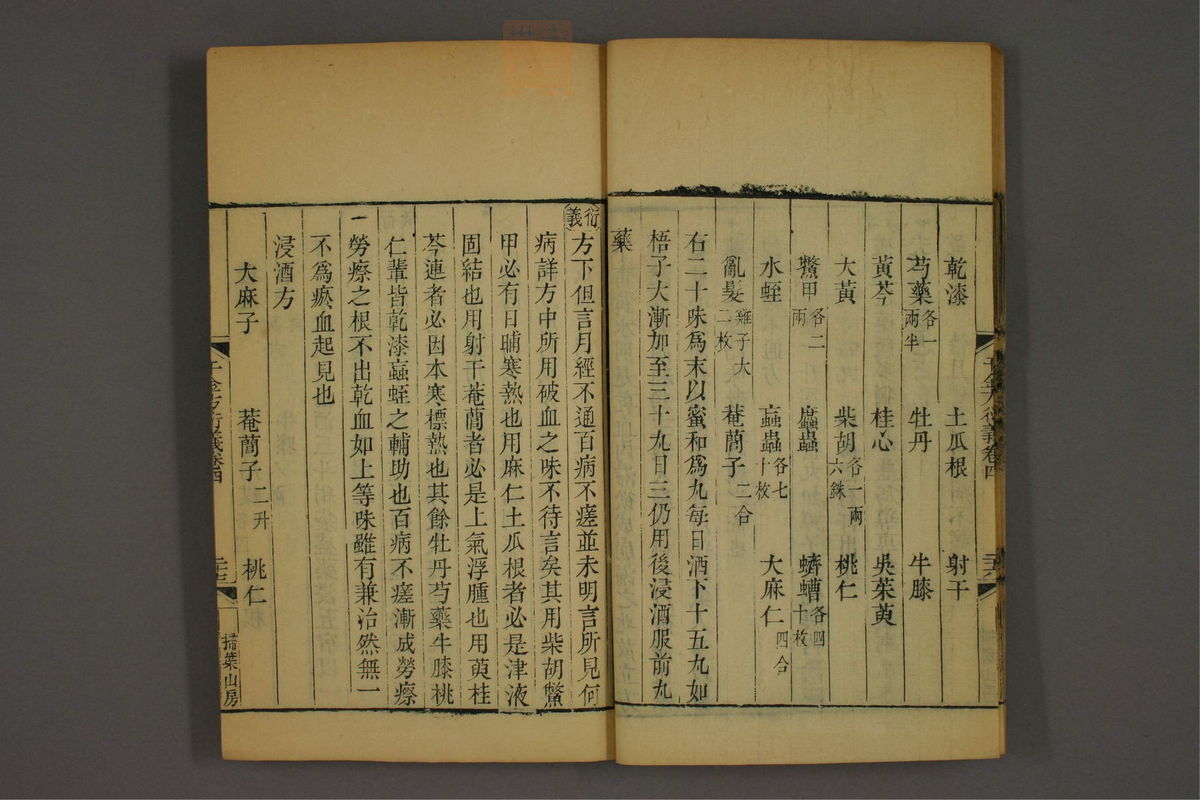 乾漆 土瓜根 射干
芍藥各一兩半 牡丹 牛膝
黃芩 桂心 吳茱萸
大黃 柴胡各一兩六銖 桃仁
鱉甲各二兩 䗪蟲 蠐螬各四十枚
水蛭 蝱蟲各七十枚 大麻仁四合
亂髮雞子大二枚 菴䕡子二合
右二十味爲末以蜜和爲丸每日酒下十五丸如
梧子大漸加至三十丸日三仍用後浸酒服前丸
藥
衍義方下但言月經不通百病不瘥並未明言所見何
病詳方中所用破血之味不待言矣其用柴胡鱉
甲必有日晡寒熱也用麻仁土瓜根者必是津液
固結也用射干菴䕡者必是上氣浮腫也用萸桂
芩連者必因本寒標熱也其餘牡丹芍藥牛膝桃
仁輩皆乾漆蝱蛭之輔助也百病不瘥漸成勞瘵
一勞瘵之根不出乾血如上等味雖有兼治然無一
不爲瘀血起見也
浸酒方
大麻子 菴䕡子二升 桃仁
千金方衍義卷四
掃葉山房